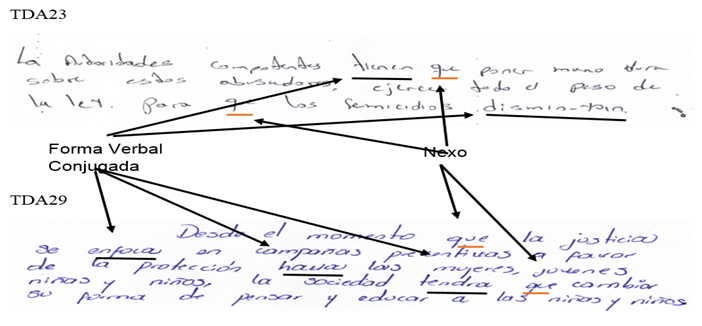 TDA23
La Autoridades competentes tienen que poner mano dura
sobre estos abusadores, ejercer todo el peso de
la ley. para que los femicidios
Forma Verbal
Conjugada
Nexo
TDA29
Desde el momento que la justicia
se enfoca en campañas preventivas a favor
de la protección hacia las mujeres, jovenes
niñas y niños, la sociedad tendra que cambiar
su forma de pensar y educar a las niñas y niños